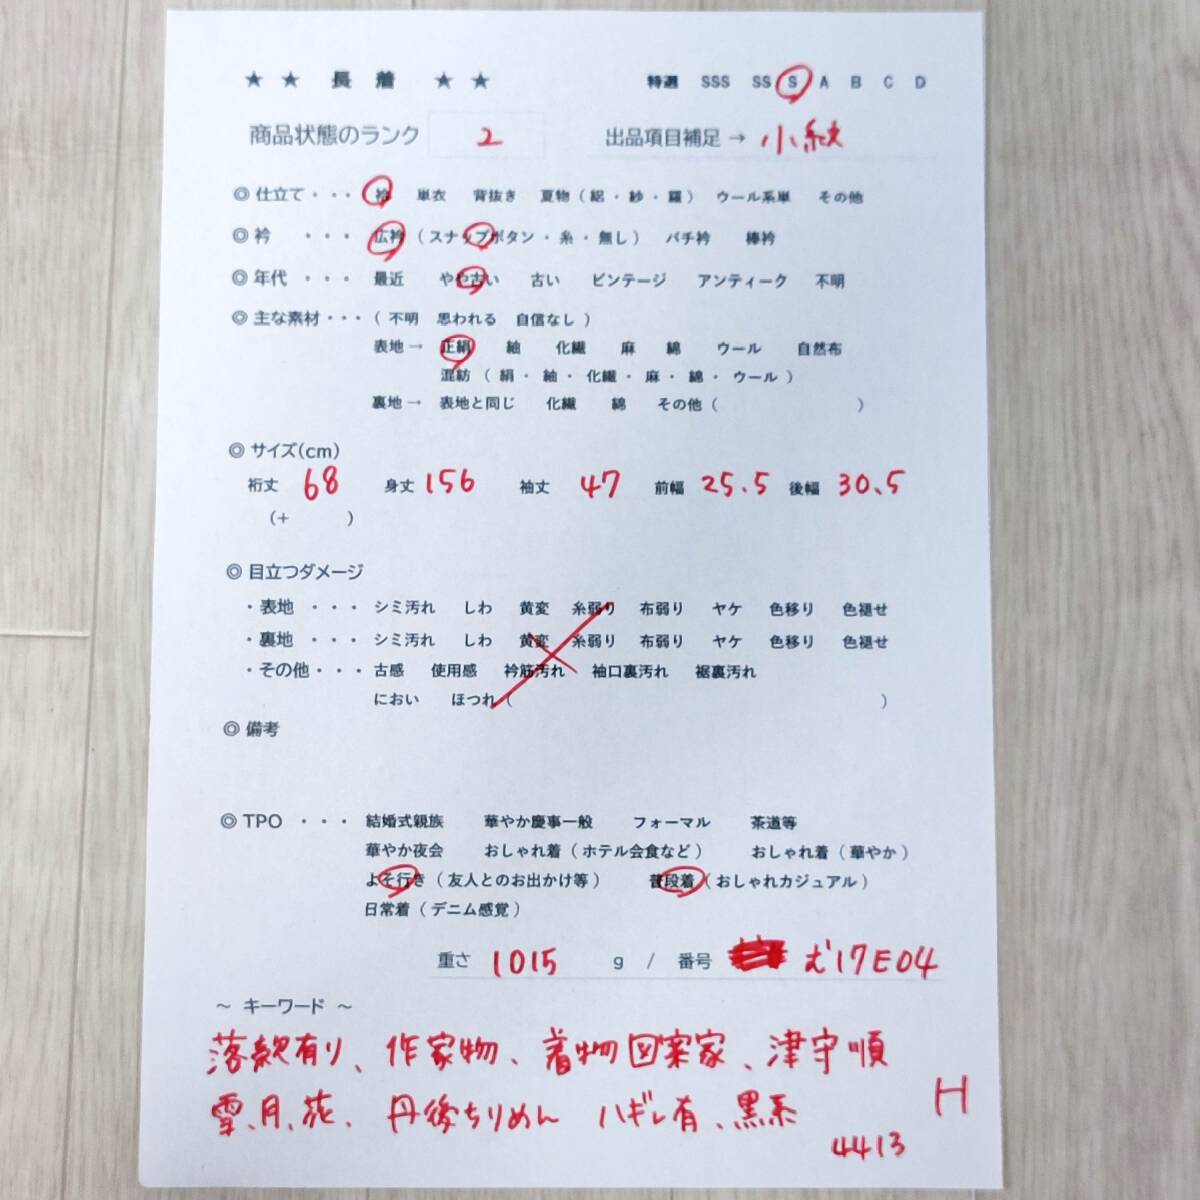 ★ ★ 長 着 ★ ★ 特選 SSS SS S A B C D
商品状態のランク 2 出品項目補足 → 小紋
◎ 仕立て・・・ 袷 単衣 背抜き 夏物 ( 絽 ・ 紗 ・ 羅 ) ウール系単 その他
◎ 衿 ・・・ 広衿 ( スナップボタン ・ 糸 ・ 無し ) バチ衿 棒衿
◎ 年代 ・・・ 最近 やや古い 古い ビンテージ アンティーク 不明
◎ 主な素材・・・ ( 不明 思われる 自信なし )
表地 → 正絹 紬 化繊 麻 綿 ウール 自然布
混紡 ( 絹 ・ 紬 ・ 化繊 ・ 麻 ・ 綿 ・ ウール )
裏地 → 表地と同じ 化繊 綿 その他 ( )
◎ サイズ(cm)
裄丈 68 身丈 156 袖丈 47 前幅 25.5 後幅 30.5
(+ )
◎ 目立つダメージ
・表地 ・・・ シミ汚れ しわ 黄変 糸弱り 布弱り ヤケ 色移り 色褪せ
・裏地 ・・・ シミ汚れ しわ 黄変 糸弱り 布弱り ヤケ 色移り 色褪せ
・その他・・・ 古感 使用感 衿筋汚れ 袖口裏汚れ 裾裏汚れ
におい ほつれ ( )
◎ 備考
◎ TPO ・・・ 結婚式親族 華やか慶事一般 フォーマル 茶道等
華やか夜会 おしゃれ着 ( ホテル会食など ) おしゃれ着 ( 華やか )
よそ行き ( 友人とのお出かけ等 ) 普段着 ( おしゃれカジュアル )
日常着 ( デニム感覚 )
重さ 1015 g / 番号 む17E04
～ キーワード ～
落款有り、作家物、着物図案家、津守順
雪、月、花、丹後ちりめん ハギレ有、黒系 H
4413